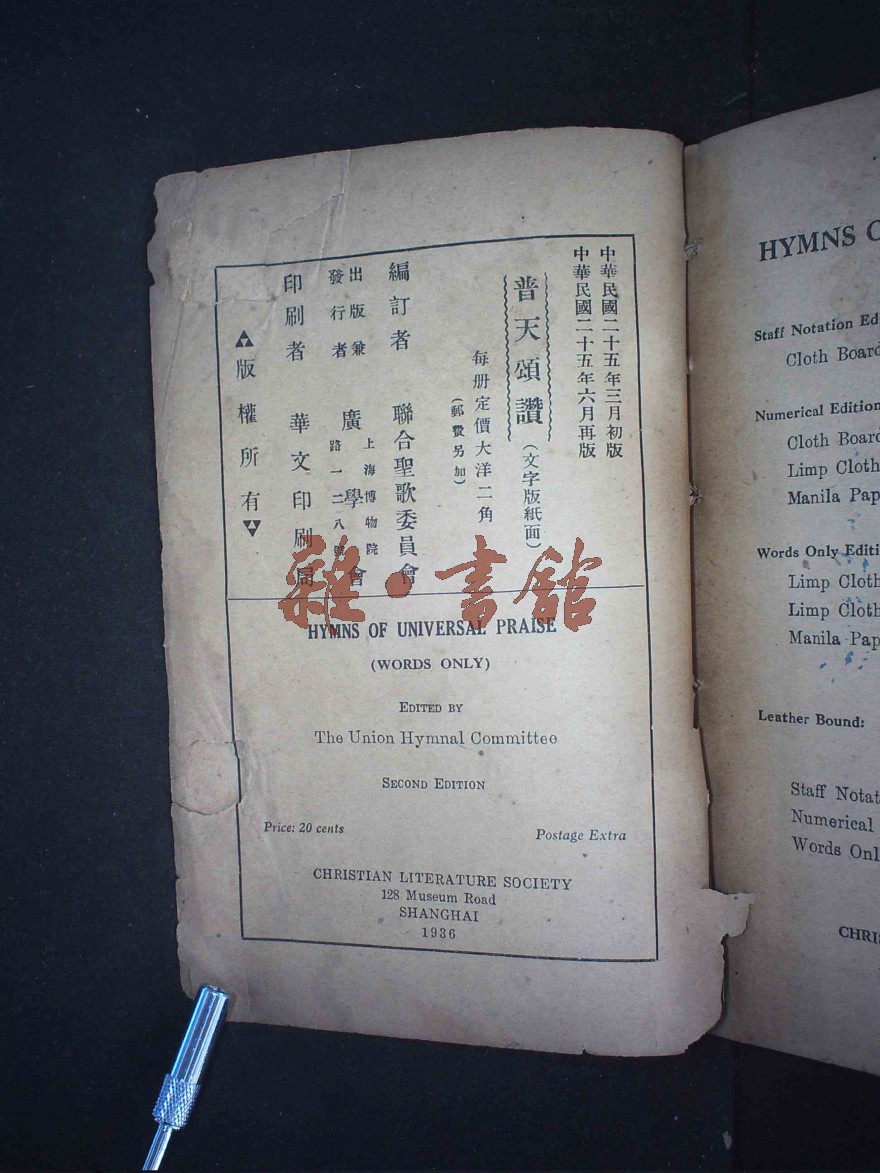 中華民國二十五年三月初版
中華民國二十五年六月再版
普天頌讚(文字版紙面)
每册定價大洋二角
(郵費另加)
編訂者 聯合聖歌委員會
出版兼發行者 廣學會
上海博物院
路一二八號
印刷者 華文印刷局
版權所有
雜·書館
HYMNS OF UNIVERSAL PRAISE
(WORDS ONLY)
EDITED BY
The Union Hymnal Committee
SECOND EDITION
Price: 20 cents Postage Extra
CHRISTIAN LITERATURE SOCIETY
128 Museum Road
SHANGHAI
1936
HYMNS O
Staff Notation Ed
Cloth Board
Numerical Edition
Cloth Board
Limp Cloth
Manila Pap
Words Only Editi
Limp Cloth
Limp Cloth
Manila Pap
Leather Bound:
Staff Notat
Numerical
Words Onl
CHRIS